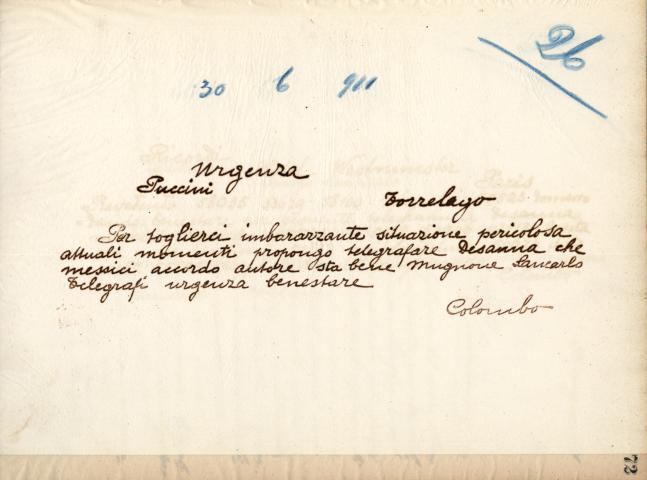 26
30 6 911
Urgenza
Puccini Torrelago
Per toglierci imbarazzante situazione pericolosa
attuali momenti propongo telegrafare Desanna che
messici accordo autore sta bene Mugnone Sancarlo
Telegrafi urgenza benestare
Colombo
72